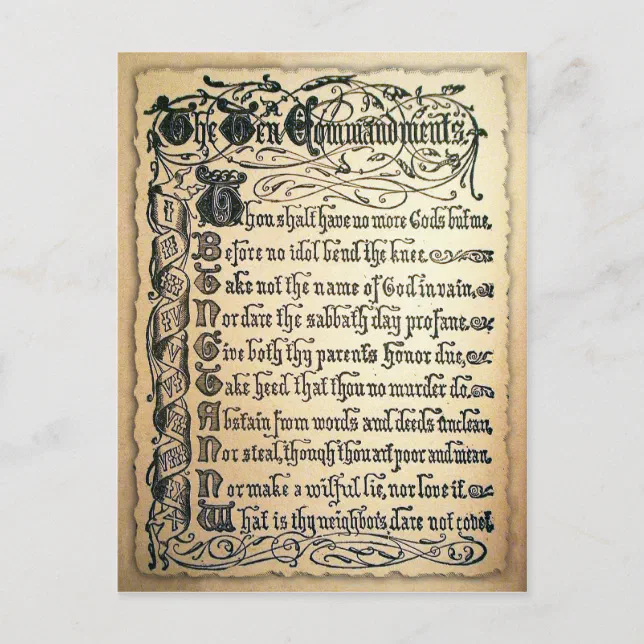 The Ten Commandments.
I
Thou shalt have no more Gods but me.
II
Before no idol bend the knee.
III
Take not the name of God in vain,
IV
Nor dare the sabbath day profane.
V
Give both thy parents honor due,
VI
Take heed that thou no murder do.
VII
Abstain from words and deeds unclean,
VIII
Nor steal, though thou art poor and mean,
IX
Nor make a wilful lie, nor love it.
X
What is thy neighbors dare not covet.